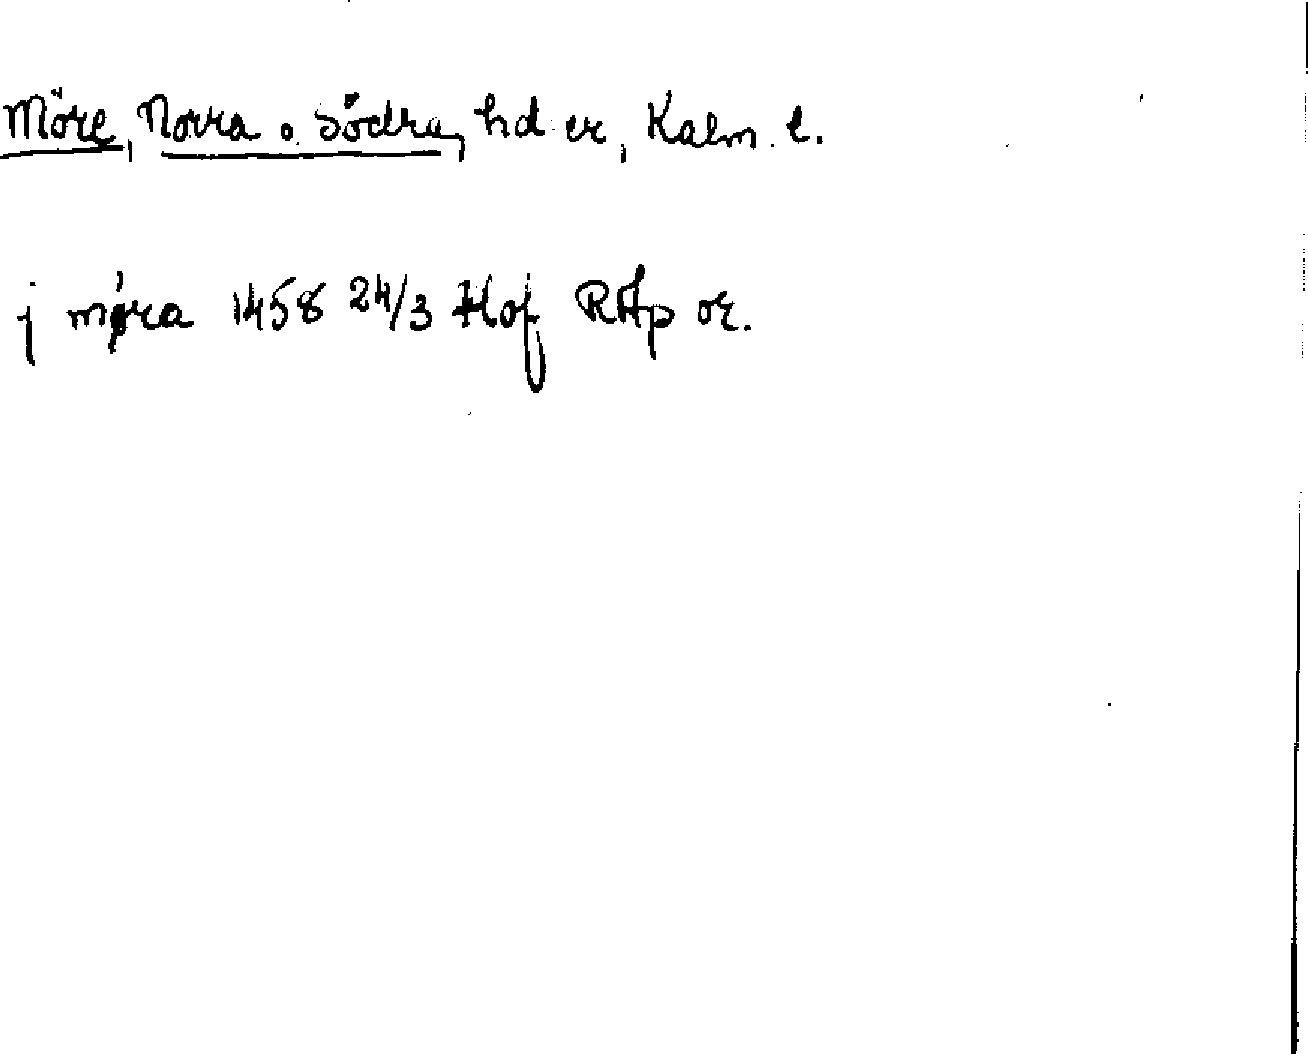 Möre, Norra o. Södra, hd er, Kalm. l.
j møra 1458 24/3 Hof RAp or.